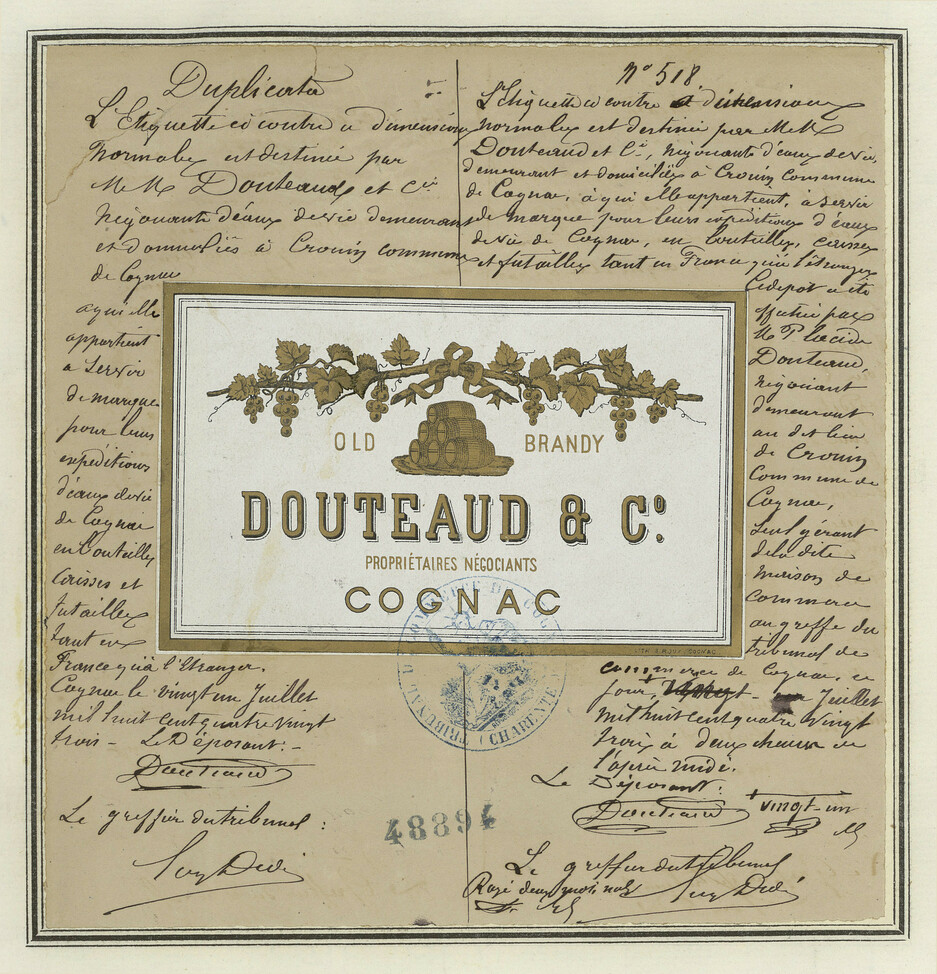 Duplicata
L'Etiquette ci contre a dimensions
Normales est destinée par
M M Douteaud et Cie
Négociants d'eaux de vie demeurant
et domiciliés à Crouin commune
de Cognac
a qui elle
appartient
a servir
de marque
pour leurs
expéditions
d'eaux de vie
de Cognac
en bouteilles
Caisses et
futailles
tant en
France qu'à l'Etranger.
Cognac le vingt un Juillet
mil huit cent quatre vingt
trois - Le Déposant :-
Douteaud
Le greffier du tribunal :
No 518
L'Etiquette ci contre a dimensions
normales est destinée par M M
Douteaud et Cie, négociants d'eaux de vie,
demeurant et domiciliés à Crouin Commune
de Cognac, à qui elle appartient, à servir
de marque pour leurs expéditions d'eaux
de vie de Cognac, en bouteilles, caisses
et futailles tant en France qu'à l'étranger
Ce dépot a été
effectué par
M Placide
Douteaud,
négociant
demeurant
au dit lieu
de Crouin
Commune de
Cognac,
seul gérant
de la dite
maison de
commerce
au greffe du
tribunal de
commerce de Cognac, ce
jour, + Juillet
mil huit cent quatre vingt
trois à deux heures de
l'après midi.
Le Déposant :
Douteaud
+ vingt-un
Le greffier du tribunal
Rayé deux mots nuls
OLD BRANDY
DOUTEAUD & Co.
PROPRIÉTAIRES NÉGOCIANTS
COGNAC
TRIBUNAL DE COMMERCE DE COGNAC (CHARENTE)
48894